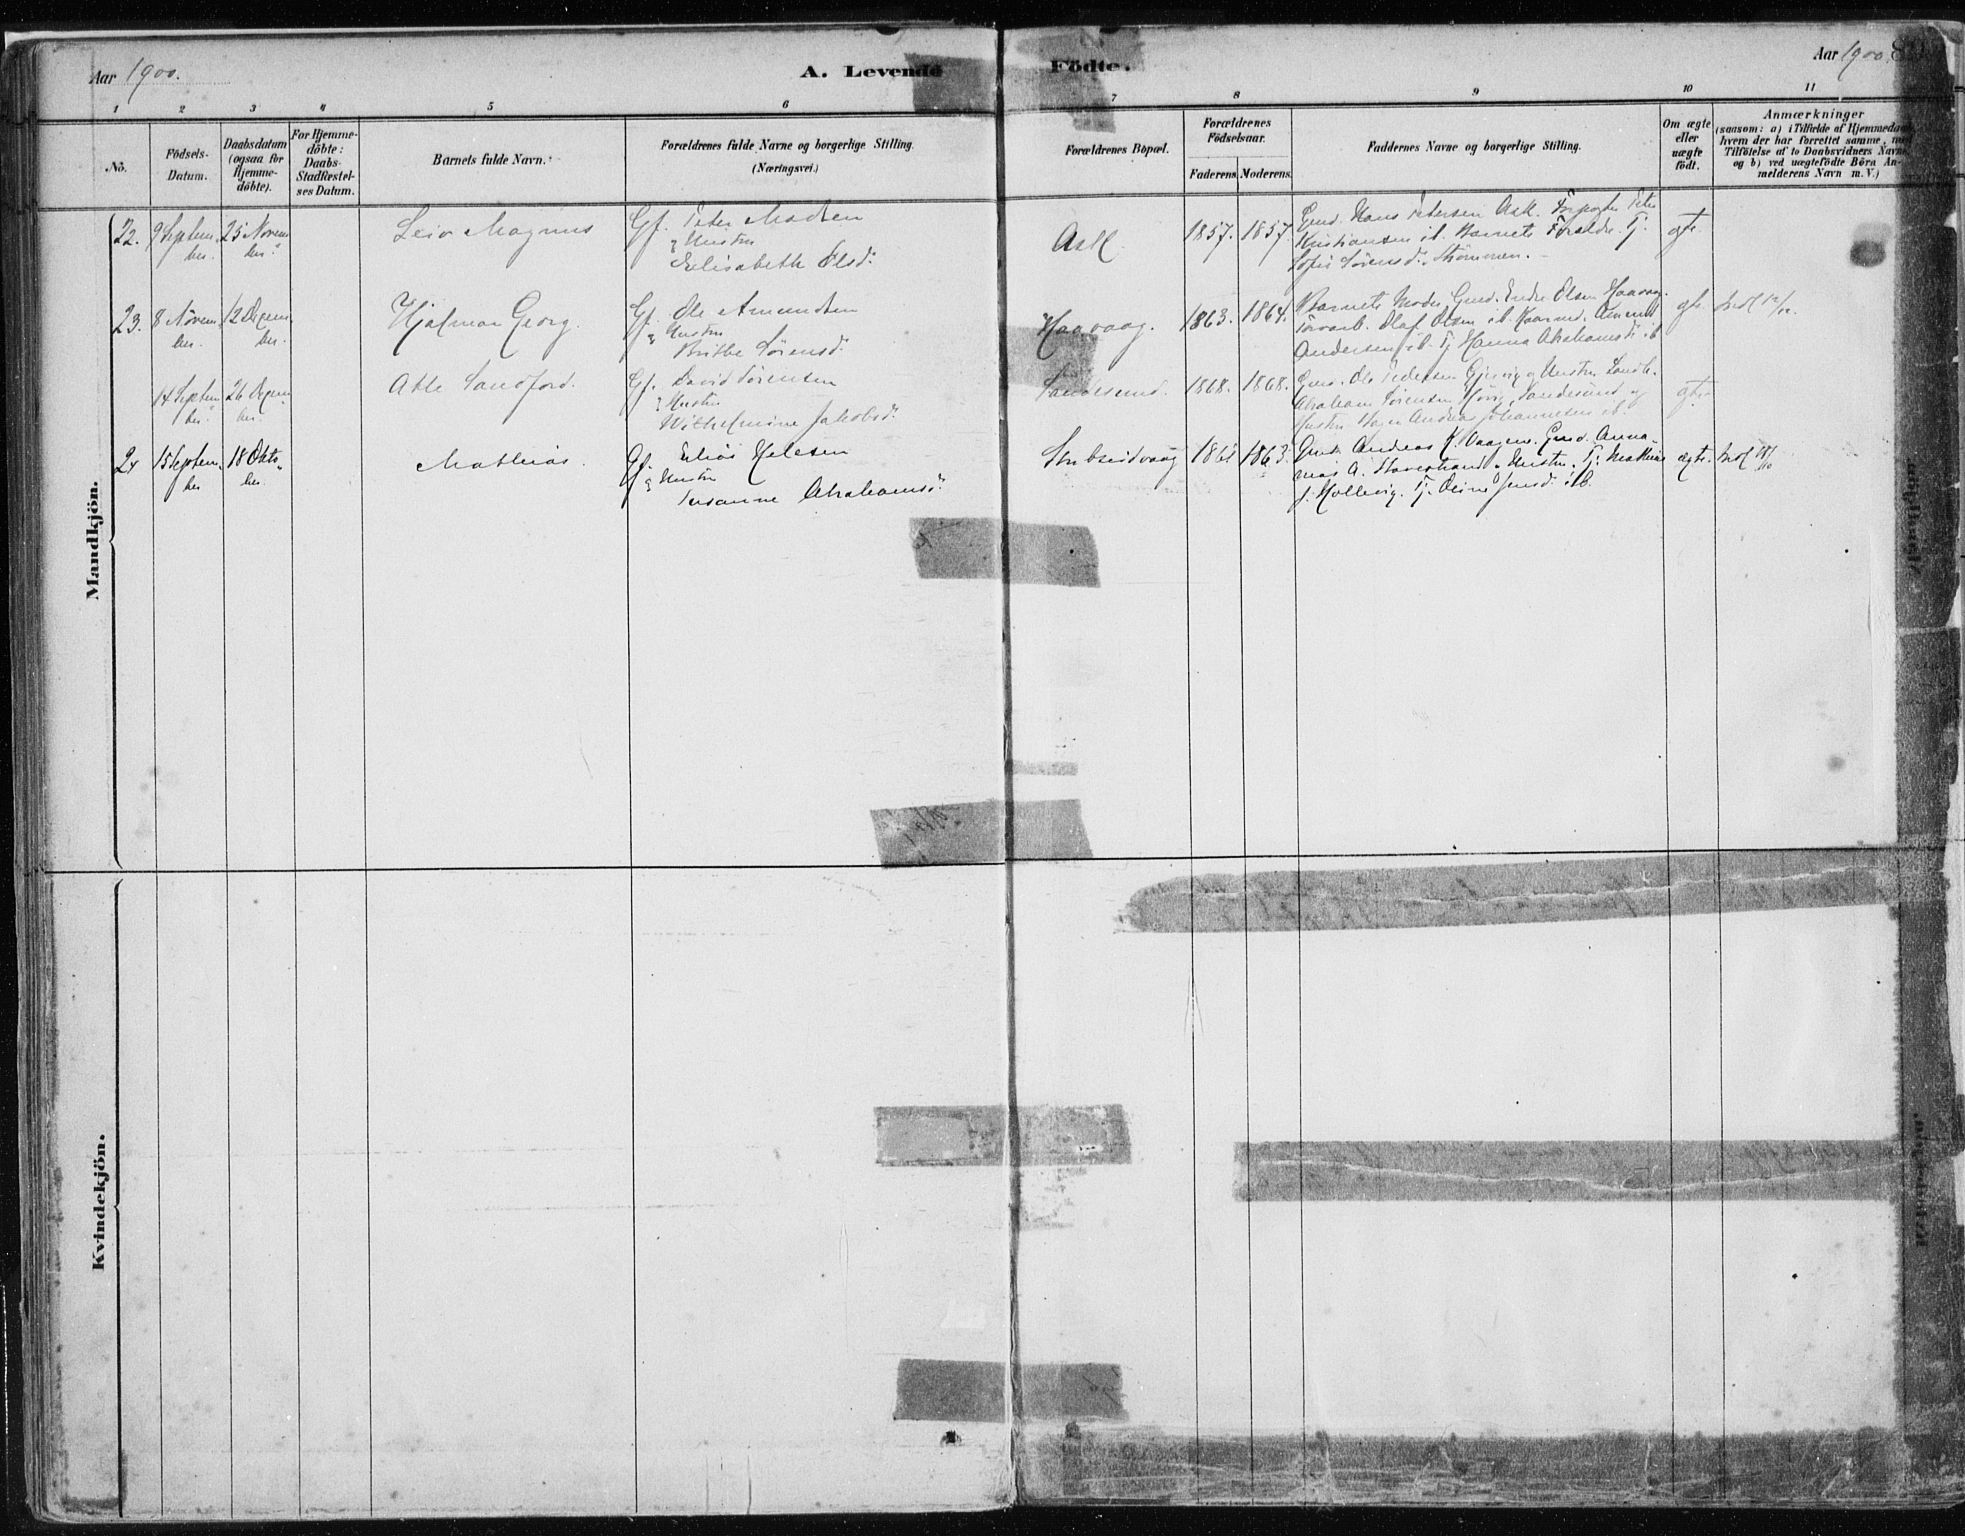 Aar 1900.
A. Levende Födte.
Aar 1900.
1 2 3 4 5 6 7 8 9 10 11
No.
Födsels-Datum.
Daabsdatum (ogsaa for Hjemmedöbte).
For Hjemmedöbte: Daabs-Stadfæstelses Datum.
Barnets fulde Navn.
Forældrenes fulde Navne og borgerlige Stilling. (Næringsvei.)
Forældrenes Bopæl.
Forældrenes Födselsaar.
Faderens. Moderens.
Faddernes Navne og borgerlige Stilling.
Om ægte eller uægte födt.
Anmærkninger
(saasom: a) i Tilfælde af Hjemmedaab,
hvem der har forrettet samme, med
Tilföielse af to Daabsvidners Navne,
og b) ved uægtefödte Börn Anmelderens Navn m. V.)
Mandkjön.
22. 9 September. 25 November. Leiv Magnus Gf. Peter Madsen
& Hustru
Elisabeth Olsd. Ask. 1857. 1857. Gmd. Hans Petersen Ask. Peter
Kristiansen ib. Barnets Forældre. Tj.
Sofie Sørensd. Strømmen. gte.
23. 8 November. 12 Dezember. Hjalmar Georg. Gf. Ole Amundsen
& Hustru
Britha Sörensd. Haavaag. 1863. 1864. Barnets Moder. Gmd. Endre Olsen Haavaag.
Olaf Olsen ib. Amund
Andersen ib. Tj. Hanna Abrahamsd. ib. gte.
14 September. 26 Dezember. Atle Sandford. Gf. David Sörensen
& Hustru
Wilhelmine Jakobsd. Sandesund. 1868. 1868. Gmd. Ole Pedersen Gjervig & Hustru
Abraham Sørensen Sandesund og
Hustru Andrea Johannesen ib. gte.
24 15 September 18 Oktober. Mathias. Gf. Elias
& Hustru
Susanne Abrahamsd. 1863. Gmd. Andreas K. Vaagene. Gmd. Anna-
nias A. Stavestrand & Hustru. Tj. Mathine
J. Hollevig. Tj. Oline Jensd. ib. ægte.
Kvindekjön.